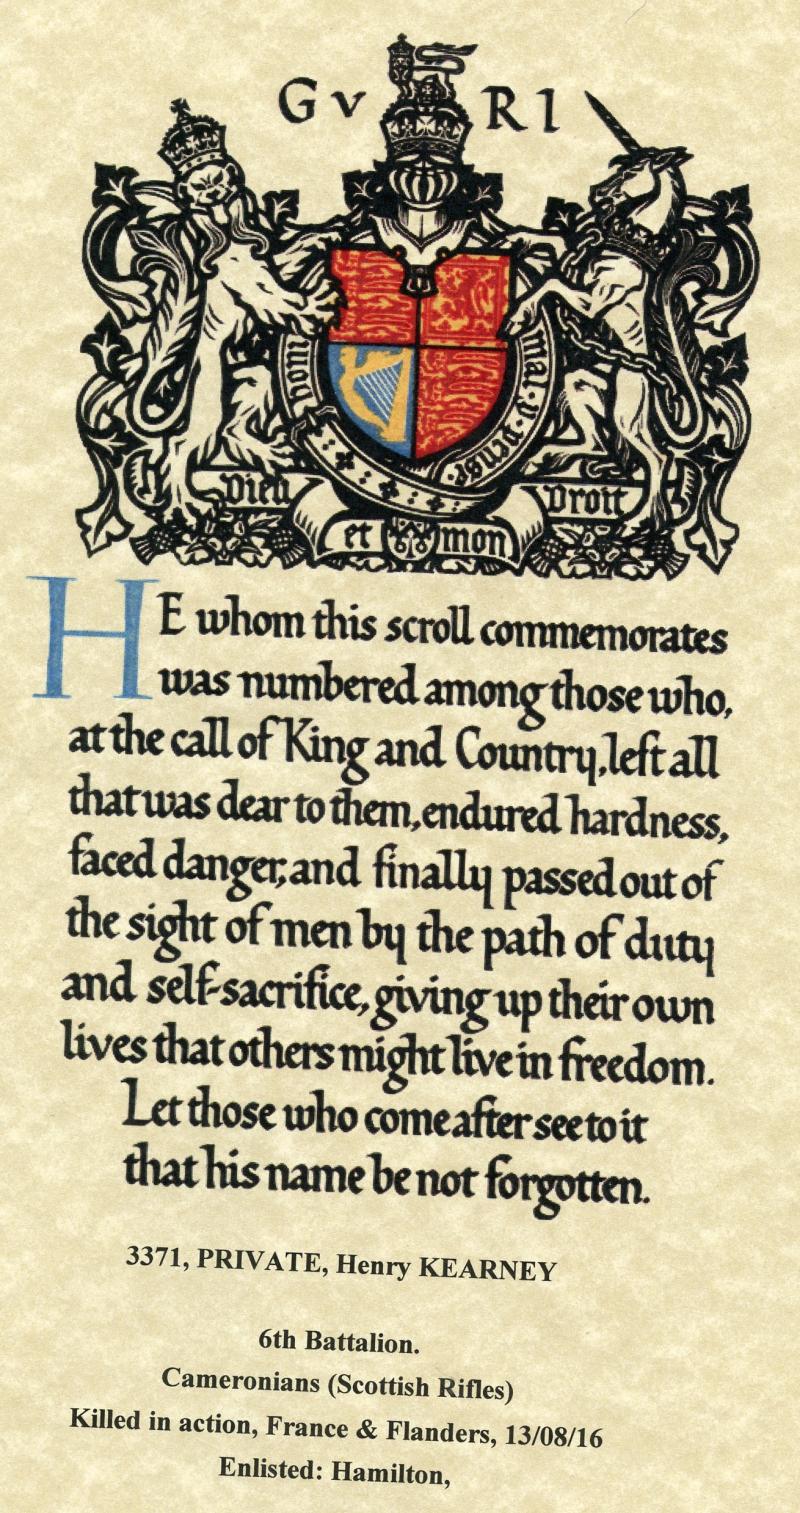 GV RI
honi
mal·y·pense
Dieu
Droit
et mon
HE whom this scroll commemorates
was numbered among those who,
at the call of King and Country, left all
that was dear to them, endured hardness,
faced danger, and finally passed out of
the sight of men by the path of duty
and self-sacrifice, giving up their own
lives that others might live in freedom.
Let those who come after see to it
that his name be not forgotten.
3371, PRIVATE, Henry KEARNEY
6th Battalion.
Cameronians (Scottish Rifles)
Killed in action, France & Flanders, 13/08/16
Enlisted: Hamilton,